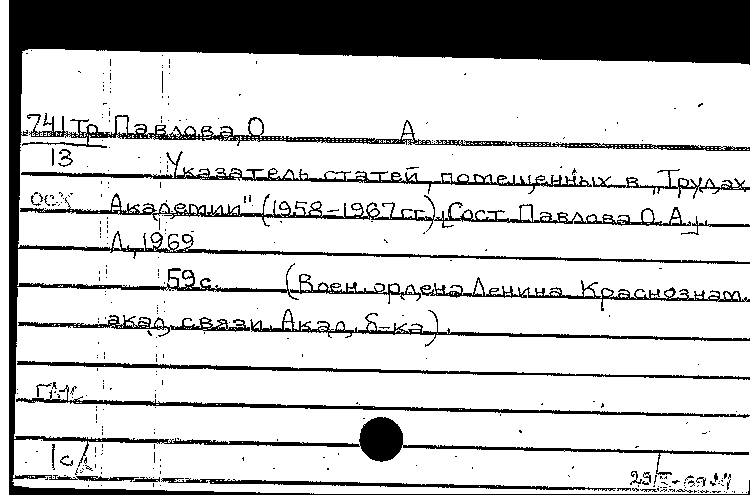 741Тр Павлова, О А
13 Указатель статей, помещенных в „Трудах
осх Академии" (1958-1967 гг.). [Сост. Павлова О. А.].
Л., 1969
59 с. (Воен. ордена Ленина Краснознам.
акад. связи. Акад. б-ка).
1с